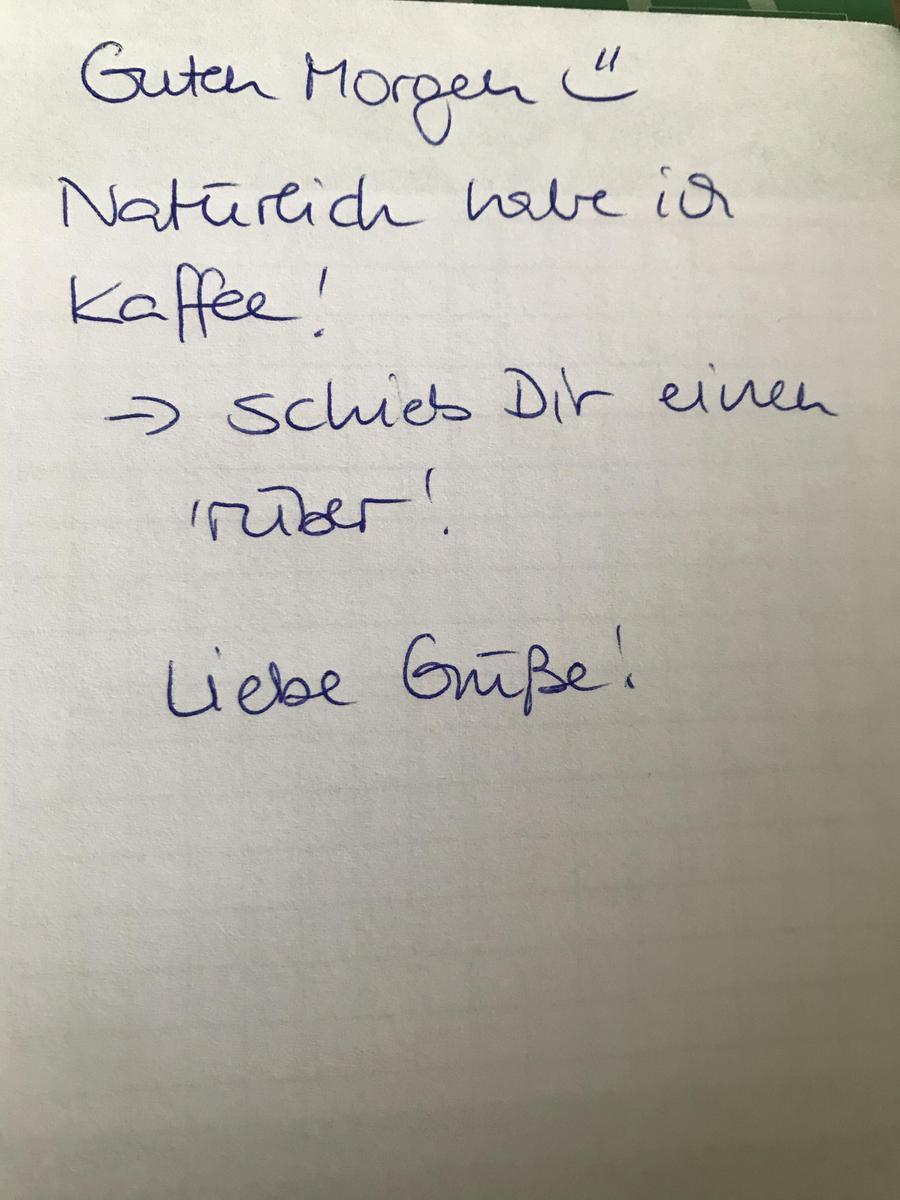 Guten Morgen
Natürlich habe ich
Kaffee!
→ schieb Dir einen
'rüber!
Liebe Grüße!